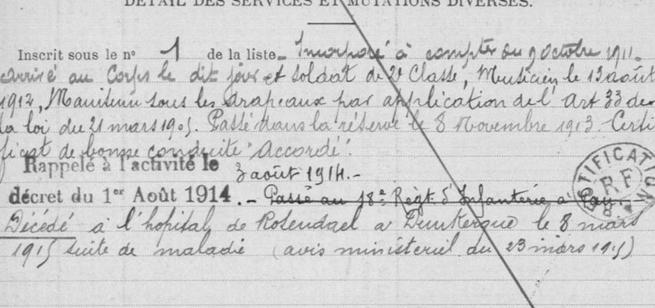 DÉTAIL DES SERVICES ET MUTATIONS DIVERSES.
Inscrit sous le n° 1 de la liste. Incorporé à compter du 9 octobre 1911.
arrivé au Corps le dit jour et soldat de 2e Classe, Musicien le 13 août
1912, Maintenu sous les drapeaux par application de l'Art 33 de
la loi du 21 mars 1905. Passé dans la réserve le 8 Novembre 1913. Certi
ficat de bonne conduite "Accordé".
Rappelé à l'activité le 3 août 1914.-
décret du 1er Août 1914. - Passé au 18e Régt d'Infanterie à Pau.
RECTIFICATION R.F
Décédé à l'hopital de Rosendael à Dunkerque le 8 mars
1915 suite de maladie (avis ministeriel du 23 mars 1915)